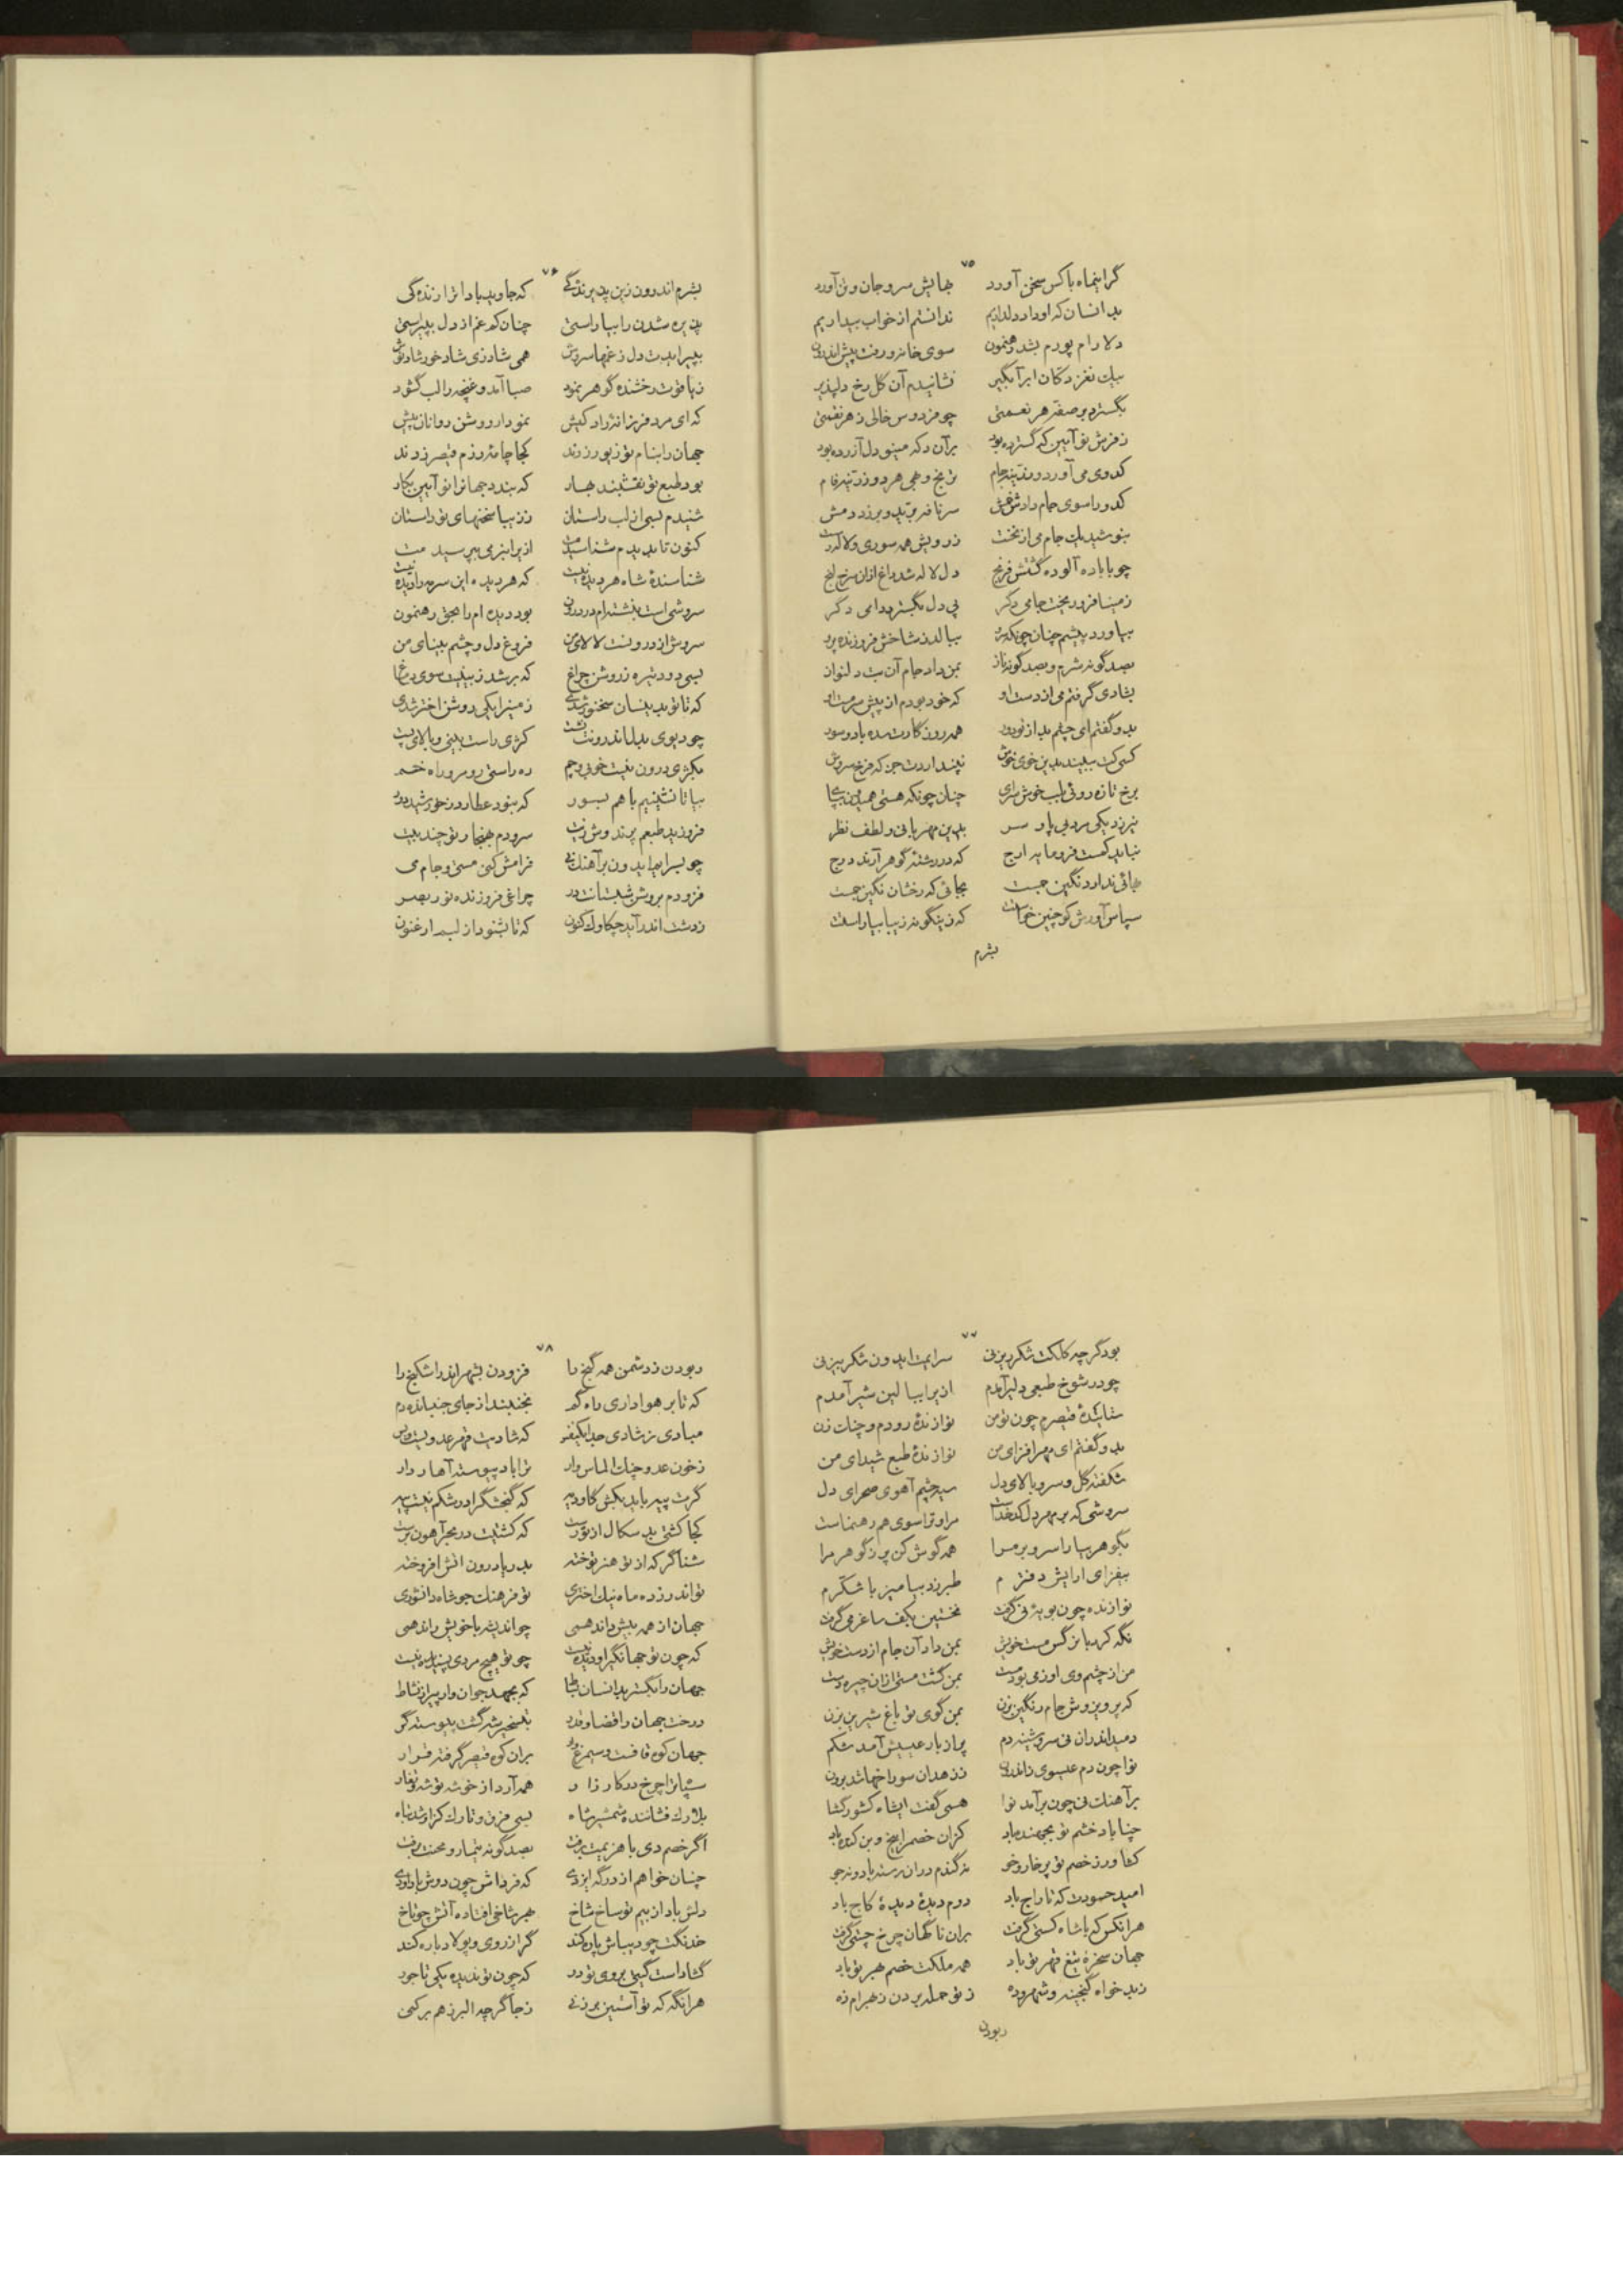 ۷۵
گر اینماه با کس سخن آورد بهایش سر و جان و تن آورد
بدانسان که او داد دلداریم ندانستم از خواب بیداریم
دلارام پورم بشد رهنمون سوی خانه و رفت پیش اندرون
بیک نغز دکان ابر آبگیر نشانیدم آن گل رخ دلپذیر
بگسترد بر صفه هر نعمتی چو فردوس خالی ز هر نقمتی
ز فرش نو آیین که گسترده بود بر آن دکه مینو دل آزرده بود
کدوی می آورد و رنگینه جام
کدو را سوی جام دادش
بنوشید یک جام می از نخست ز رویش همه سوری و لاله رست
چو با باده آلوده گشتش فرنج دل لاله شد داغ از آن سرخ لنج
ز مینا فرو ریخت جامی دگر پی دل بگسترد دامی دگر
بیاورد پیشم چنان چونکه ببالد ز شاخش فروزنده
بصد گونه شرم و بصد گونه ناز بمن داد جام آن بت دلنواز
بشادی گرفتم می از دست او که خود بودم از پیش سرمست او
بدو گفتم ای چشم بد از تو دور همه روزگارت
کسی کت ببیند بدین خوی خوش نپنداردت جز که فرخ سروش
برخ تازه روئی بلب خوش سرای چنان چونکه هستی همیدون بپای
نیرزد یکی مرد بی پا و سر بدین مهربانی و لطف نظر
نباید کست فرومایه ارج که در رشته گوهر آرند درج
بهائی ندارد نگین جست بجائی که رخشان نگین جست
سپاس آورش کو چنین خواست که زینگونه زیبا بیاراست
بشرم
۷۶
بشرم اندرون زین پدیرندگی که جاوید بادا ترا زندگی
پذیره شدن را بیاراستی چنان کم غم از دل بپیراستی
بپیرایدت دل ز غمها سروش همی شاد زی شاد خور شاد نوش
ز یاقوت رخشنده گوهر نمود صبا آمد و غنچه را لب گشود
که ای مرد فرزانه راد کیش نمودار روشن روانان پیش
جهان را بنام تو زیور زدند کجا چامه رزم قیصر زدند
بود طبع تو نقشبند بهار که بندد جهانرا نو آیین نگار
شنیدم بسی از لب راستان ز زیبا سخنهای تو داستان
کنون تا بدیدم شناسیدمت ازیرا بنرمی بپرسیدمت
شناسندهٔ شاه هر دیده نیست که هر دیده این سرمه را دیده نیست
سروشی است بنشسته‌ام در درون بود دیده‌ام را بحق رهنمون
سروش اندرونست لالای من فروغ دل و چشم بینای من
بسی دود تیره ز روشن چراغ که بر شد ز بینیت سوی دماغ
که تا تو بدینسان سخنور شدی زمین را یکی روشن اختر شدی
چو دیوی بد اندرونت نشست کژی راست بینی و بالای پست
بکژی درون نیست خوبی و چم ره راستی رو مرو راه خم
بیا تا نشینیم با هم بسور که بنود عطارد ز خورشید دور
فروزید طبعم پرندوش سرودم بهنجار تو چند بیت
چو بسرایم ایدون بر آهنگ نی فرامش کنی مستی و جام می
فزودم بروشن شبستانت در چراغی فروزنده نور بصر
ز دشت اندر آید چکاوک کنون که تا بشنود از لبم ارغنون
۷۷
بود گرچه کلکت شکر ریز نی سرایمت ایدون شکر بیز نی
چو در شوخ طبعی دلیر آمدم ازیرا ببالین شیر آمدم
ستایندهٔ قیصرم چون تو من نوازندهٔ رودم و چنگ زن
بدو گفتم ای مهر افزای من نوازندهٔ طبع شیدای من
شکفته گل و سرو بالای دل سیه چشم آهوی صحرای دل
سروشی که بر مهر دل کدخداست مرا و ترا سوی هم رهنماست
بگوهر بیارا سر و بر مرا همه گوش کن پر ز گوهر مرا
بیفزای آرایش دفترم طبرزد بیامیز با شکرم
نوازنده چون بویهٔ نی گرفت نخستین بکف ساغر می گرفت
نگه کرد با نرگس مست خویش بمن داد آن جام از دست خویش
من از چشم وی او ز می بود مست بمن گشت مستی از آن چیره دست
که پرویزوش جام رنگین بزن بمن گوی تو باغ شیرین بزن
دمید اندران نی سروشینه دم پر از باد عیسیش آمد شکم
نوا چون دم عیسوی زاندرون ز زهدان سوراخها شد برون
بر آهنگ نی چون بر آمد نوا همی گفت ایشاه کشور گشا
چنا باد خشم تو بجهنده باد کزان خصم را بیخ و بن کنده باد
کشاورز خصم تو پر خار و خو نه گندم در آن رسته بادو نه جو
امید حسودت که تاراج باد دوم دیدهٔ دیدهٔ کاج باد
هر آنکس که با شاه کستی گرفت بر آن ناگهان چرخ چستی گرفت
جهان سخرهٔ تیغ قهر تو باد همه ملکت خصم بهر تو باد
ز بدخواه گنجینه و شهر و ده ز تو حمله بردن ز بهرام زه
ربودن
۷۸
ربودن ز دشمن همه گنج را فزودن بشهر اندر اشکنج را
که تا بر هواداری راه گم نجنبند از جای جنباند دم
مبادی ز شادی جدا یکنفس که شادیت قهر عدویست و بس
ز خون عدو چنگ الماس دار ترا باد پیوسته آهار دار
گرت پیه باید بکش گاو که گنجشگ را در شکم نیست پیه
کجا کشتی بد سکال از تو رست که کشتیت در بحر آهون
شناگر که از تو هنر توخته بدریا درون آتش افروخته
تو اندر زده ماه نیک اختری تو فرهنگ جو شاه دانشوری
جهان از همه بیش داند همی چو اندیشه با خویش راند همی
که چون تو جهانگیر او دیده نیست چو تو هیچ مردی پسندیده نیست
جهان را بگسترد انسان بساط که بجهد جوان وار پیر از نشاط
درخت جهان را قضا و قدر بتسخیر شه گشت پیوسته گر
جهان کوه قافست و سیمرغ بر آن کوه قیصر گرفته قرار
سپاه ترا چرخ در کارزار همه آرد از خوشه توشه نثار
بلارک فشاننده شمشیر شاه بسی فرق و تارک کزو شد تباه
اگر خصم دی با هزیمت برفت بصد گونه تیمار و محنت برفت
چنان خواهم از درگه ایزدی که فرداش چون دوش باد از بدی
دلش باد از بیم تو ساخ شاخ بهر شاخی افتاده آتش چو تاخ
خدنگت چو دیباش پاره کند گر از روی و پولاد باره کند
گشاد است گیتی بروی تو در که چون تو ندیده یکی تاجور
هر آنگه که تو آستین بر زنی ز جا گرچه البرز هم بر کنی